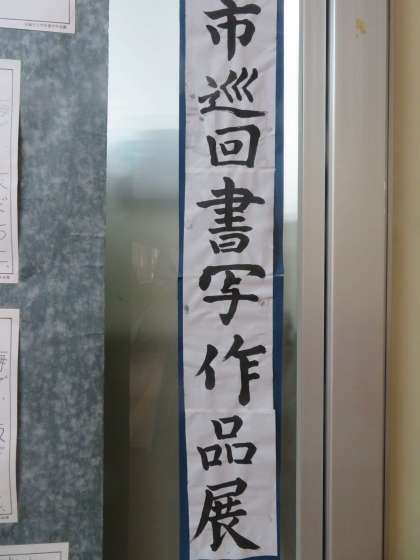 市巡回書写作品展